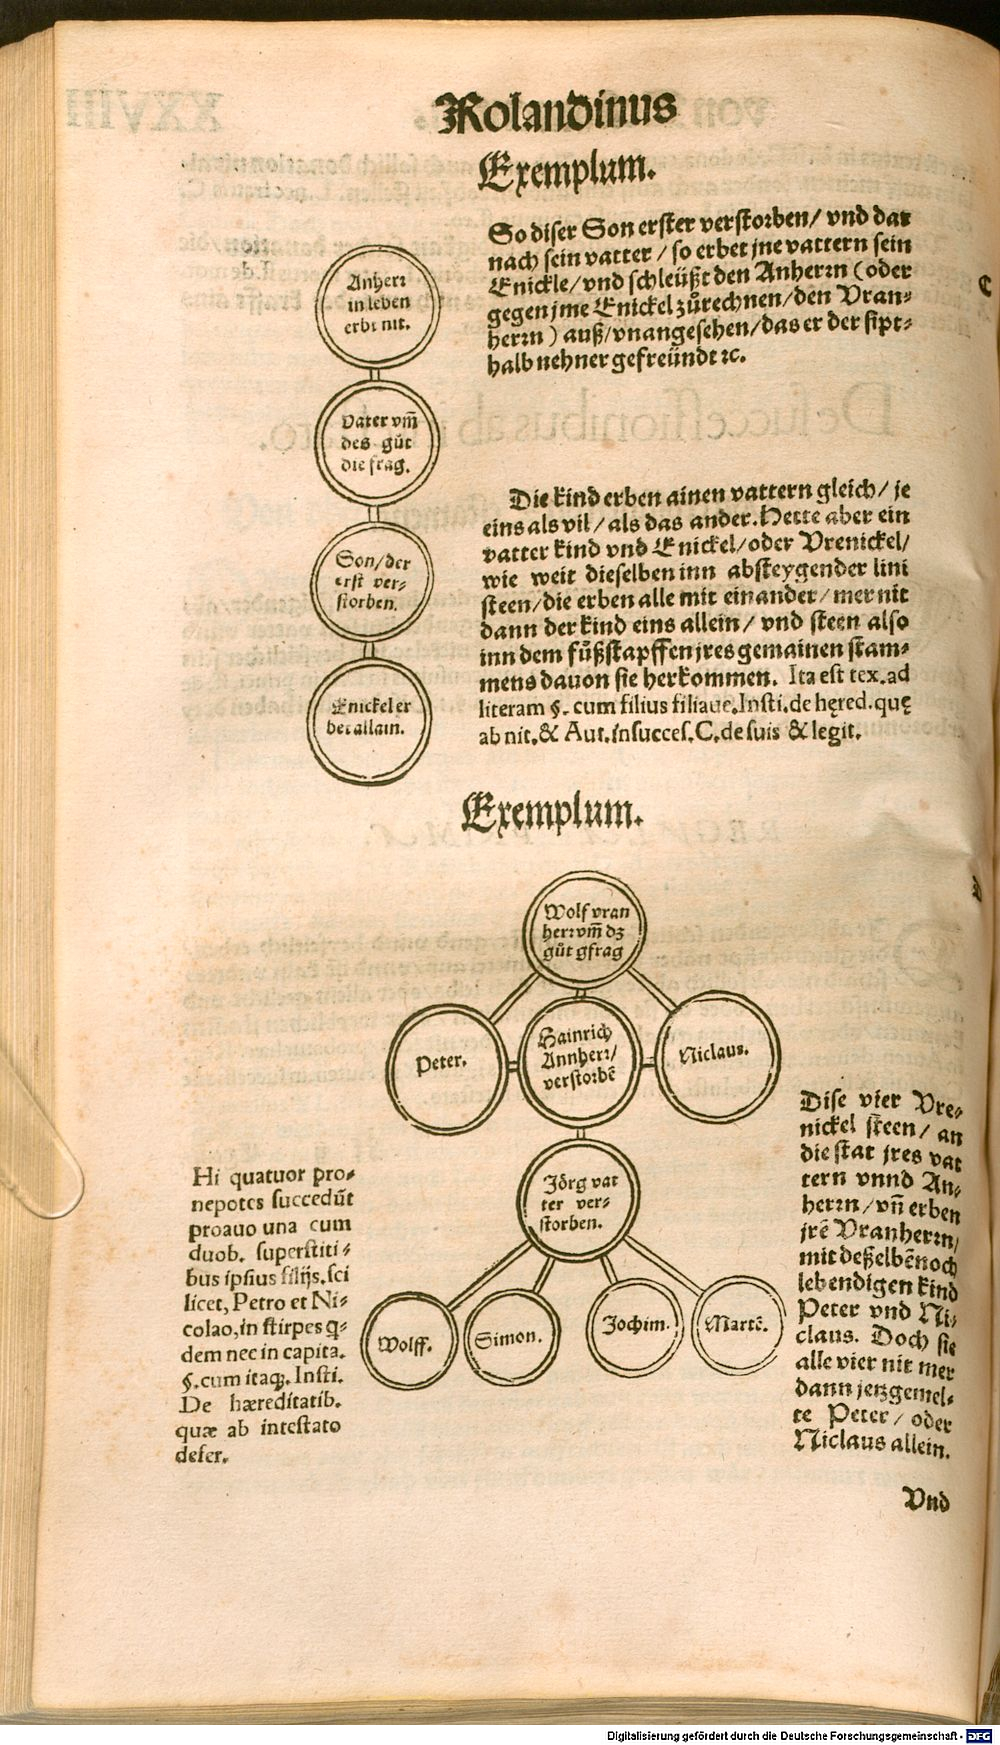 Rolandinus
Exemplum.
So diser Son erster verstorben/ vnd dar
nach sein vatter / so erbet jne vattern sein
Enickle/ vnd schleüßt den Anherrn (oder
gegen jme Enickel zůrechnen/ den Vran⸗
herrn) auß/ vnangesehen/ das er der sipt⸗
halb nehner gefreündt ꝛc.
C
Anherr
in leben
erbt nit.
Vater vm̃
des gůt
die frag.
Son/ der
erst ver⸗
storben.
Enickel er
bet allain.
Die kind erben ainen vattern gleich/ je
eins als vil/ als das ander. Hette aber ein
vatter kind vnd Enickel/ oder Vrenickel/
wie weit dieselben inn absteygender lini
steen/ die erben alle mit einander/ mer nit
dann der kind eins allein/ vnd steen also
inn dem fůßstapffen jres gemainen stam⸗
mens dauon sie herkommen. Ita est tex. ad
literam §. cum filius filiaue. Insti. de hęred. quę
ab nit. & Aut. in succes. C. de suis & legit.
Exemplum.
Wolf vran
herr vm̃ dz
gůt gfrag
Peter.
Hainrich
Annherr/
verstorbẽ
Niclaus.
Jörg vat
ter ver⸗
storben.
Wolff.
Simon.
Jochim.
Martẽ.
Hi quatuor pro⸗
nepotes succedũt
proauo una cum
duob. superstiti⸗
bus ipsius filijs. sci
licet, Petro et Ni⸗
colao, in stirpes q⸗
dem nec in capita.
§. cum itaq;. Insti.
De hæreditatib.
quæ ab intestato
defer.
Dise vier Vre⸗
nickel steen/ an
die stat jres vat
tern vnnd An⸗
herrn/ vñ erben
jrẽ Vranherrn/
mit deßelbẽ noch
lebendigen kind
Peter vnd Ni⸗
claus. Doch sie
alle vier nit mer
dann jetzgemel⸗
te Peter/ oder
Niclaus allein.
Vnd
Digitalisierung gefördert durch die Deutsche Forschungsgemeinschaft - DFG